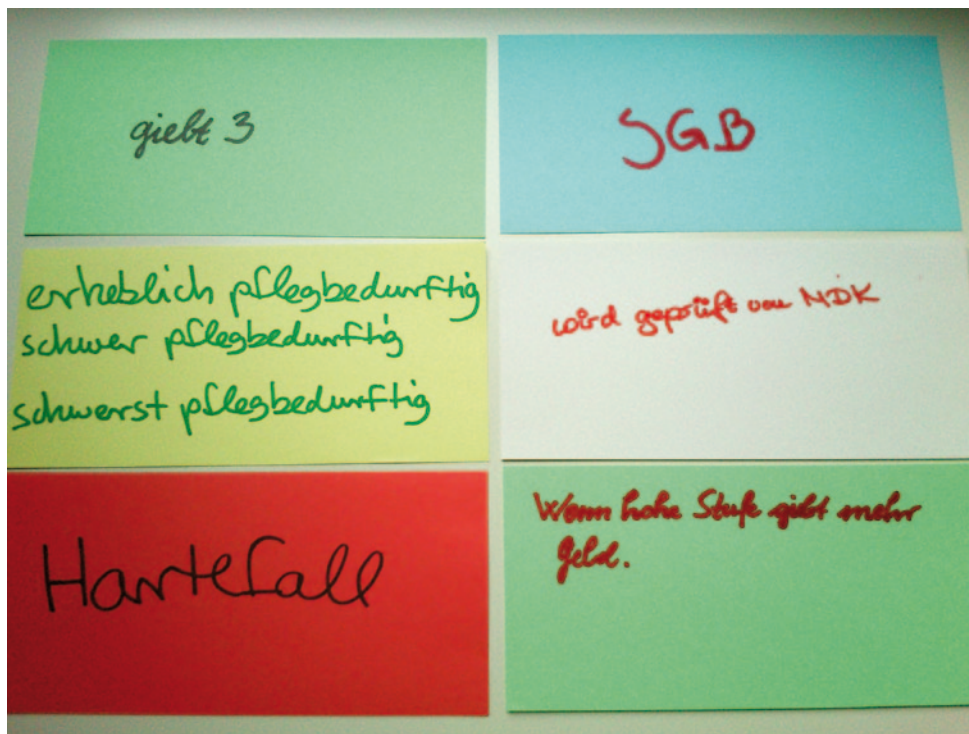 giebt 3
SGB
erheblich pflegbedurftig
schwer pflegbedurftig
schwerst pflegbedurftig
wird geprüft von MDK
Hartefall
Wenn hohe Stufe gibt mehr
Geld.